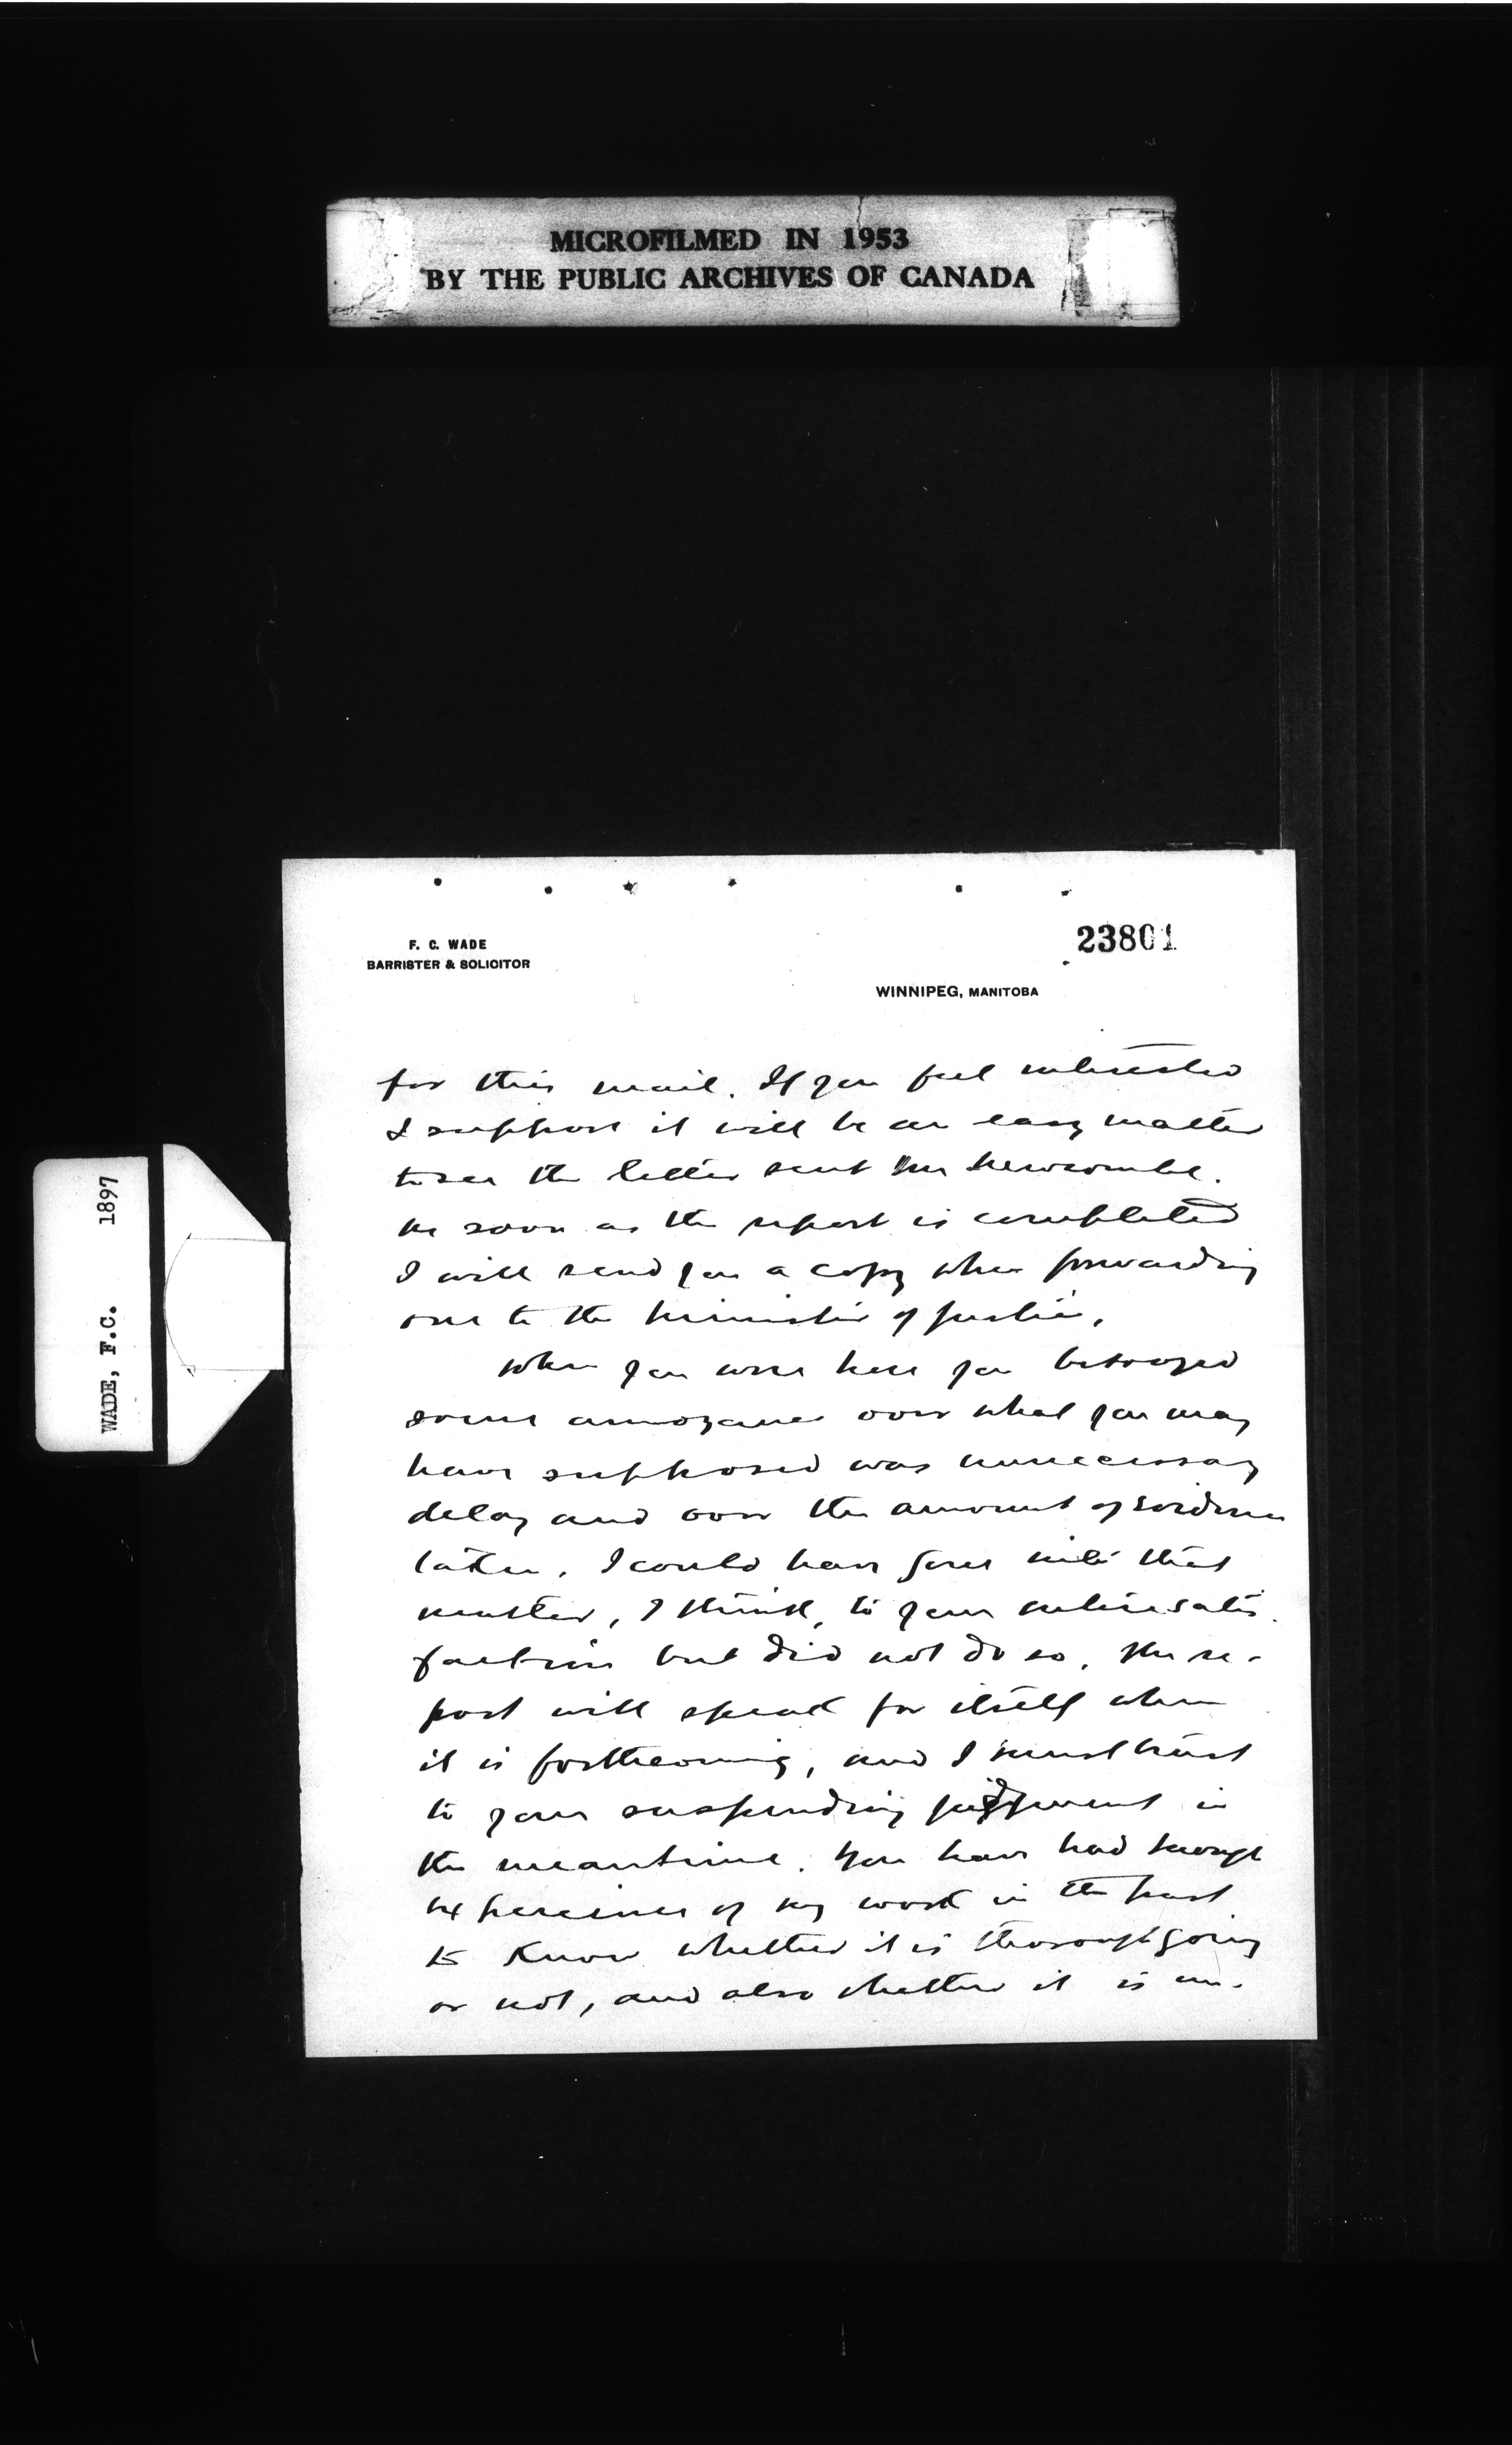 MICROFILMED IN 1953
BY THE PUBLIC ARCHIVES OF CANADA
WADE, F.C. 1897
F. C. WADE
BARRISTER & SOLICITOR
23801
WINNIPEG, MANITOBA
for this mail. If you feel interested
I suppose it will be an easy matter
to see the letter sent Mr Newcombe.
As soon as the report is completed
I will send you a copy when forwarding
one to the Minister of Justice.
When you were here you betrayed
some annoyance over what you may
have supposed was unnecessary
delay and over the amount of evidence
taken. I could have gone into that
matter, I think, to your entire satis-
faction but did not do so. The re-
port will speak for itself when
it is forthcoming, and I must trust
to your suspending judgment in
the meantime. You have had enough
experience of my work in the past
to know whether it is thoroughgoing
or not, and also whether it is un-